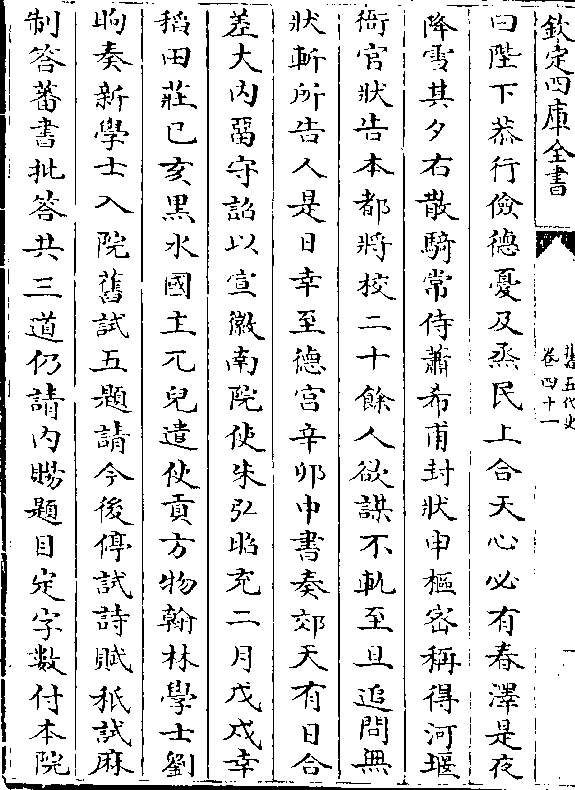 欽定四庫全書
舊五代史
卷四十一
曰陛下恭行儉德憂及烝民上合天心必有春澤是夜
降雪其夕右散騎常侍蕭希甫封狀申樞密稱得河堰
衙官狀告本都將校二十餘人欲謀不軌至旦追問無
狀斬所告人是日幸至德宮辛卯中書奏郊天有日合
差大內留守詔以宣徽南院使朱弘昭充二月戊戌幸
稻田莊己亥黑水國主兀兒遣使貢方物翰林學士劉
昫奏新學士入院舊試五題請今後停試詩賦秪試麻
制答蕃書批答共三道仍請內賜題目定字數付本院